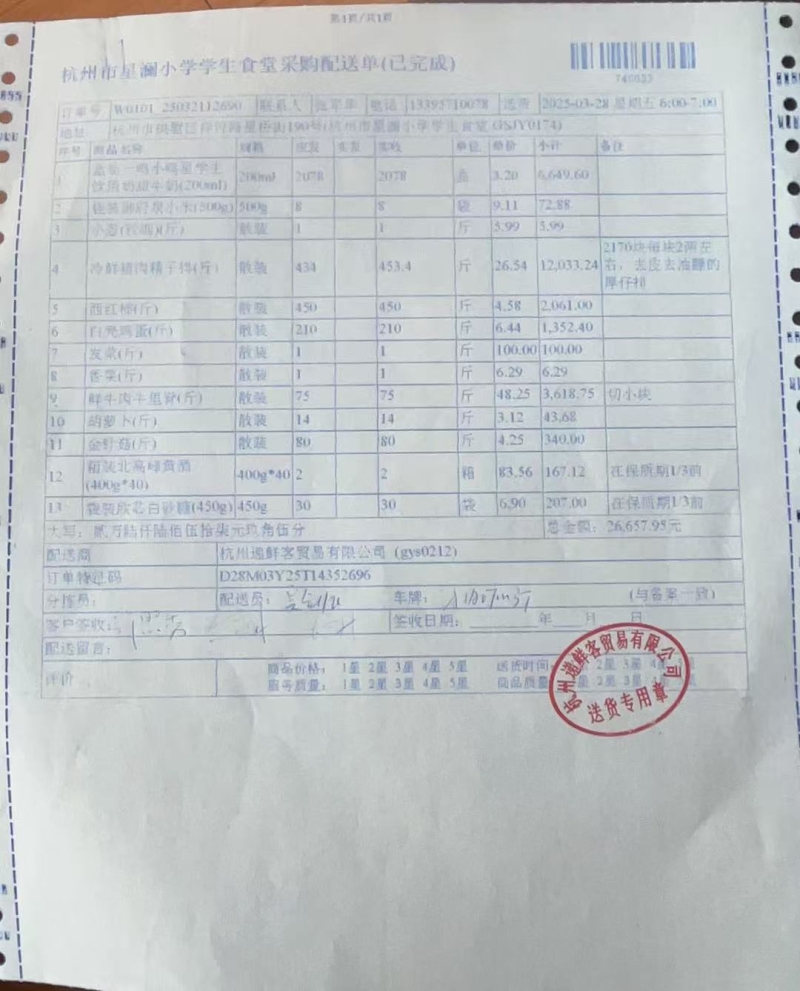 第1页/共1页
杭州市星澜小学学生食堂采购配送单(已完成)
740023
订单号 W0101 25032112690 联系人 电话 13395710078 送货 2025-03-28 星期五 6:00-7:00
地址 杭州市 星桥街190号(杭州市星澜小学学生食堂 GSJY0174)
序号 商品名称 规格 应发 实发 实收 单位 单价 小计 备注
1 一鸣 学生饮用奶甜牛奶(200ml) 200ml 2078 2078 盒 3.20 6,649.60
2 小米(500g) 500g 8 8 袋 9.11 72.88
3 小葱 (斤) 散装 1 1 斤 5.99 5.99
4 冷鲜猪肉精 (斤) 散装 434 453.4 斤 26.54 12,033.24 2170块每块2两左右，去皮去油膘的厚仔排
5 西红柿(斤) 散装 450 450 斤 4.58 2,061.00
6 白壳鸡蛋(斤) 散装 210 210 斤 6.44 1,352.40
7 发菜(斤) 散装 1 1 斤 100.00 100.00
8 香菜(斤) 散装 1 1 斤 6.29 6.29
9 鲜牛肉牛里脊(斤) 散装 75 75 斤 48.25 3,618.75 切小块
10 胡萝卜(斤) 散装 14 14 斤 3.12 43.68
11 金针菇(斤) 散装 80 80 斤 4.25 340.00
12 箱装北高峰黄酒(400g*40) 400g*40 2 2 箱 83.56 167.12 在保质期1/3前
13 袋装欣芯白砂糖(450g) 450g 30 30 袋 6.90 207.00 在保质期1/3前
大写：贰万陆仟陆佰伍拾柒元玖角伍分 总金额：26,657.95元
配送商 杭州递鲜客贸易有限公司 (gys0212)
订单特征码 D28M03Y25T14352696
分拣员： 配送员： 车牌： (与备案一致)
客户签收： 签收日期： 年 月 日
配送留言：
评价 商品价格： 1星 2星 3星 4星 5星 送货时间： 2星 3星 4星
服务质量： 1星 2星 3星 4星 5星 商品质量 2星 3星 4星 5星
杭州递鲜客贸易有限公司
送货专用章